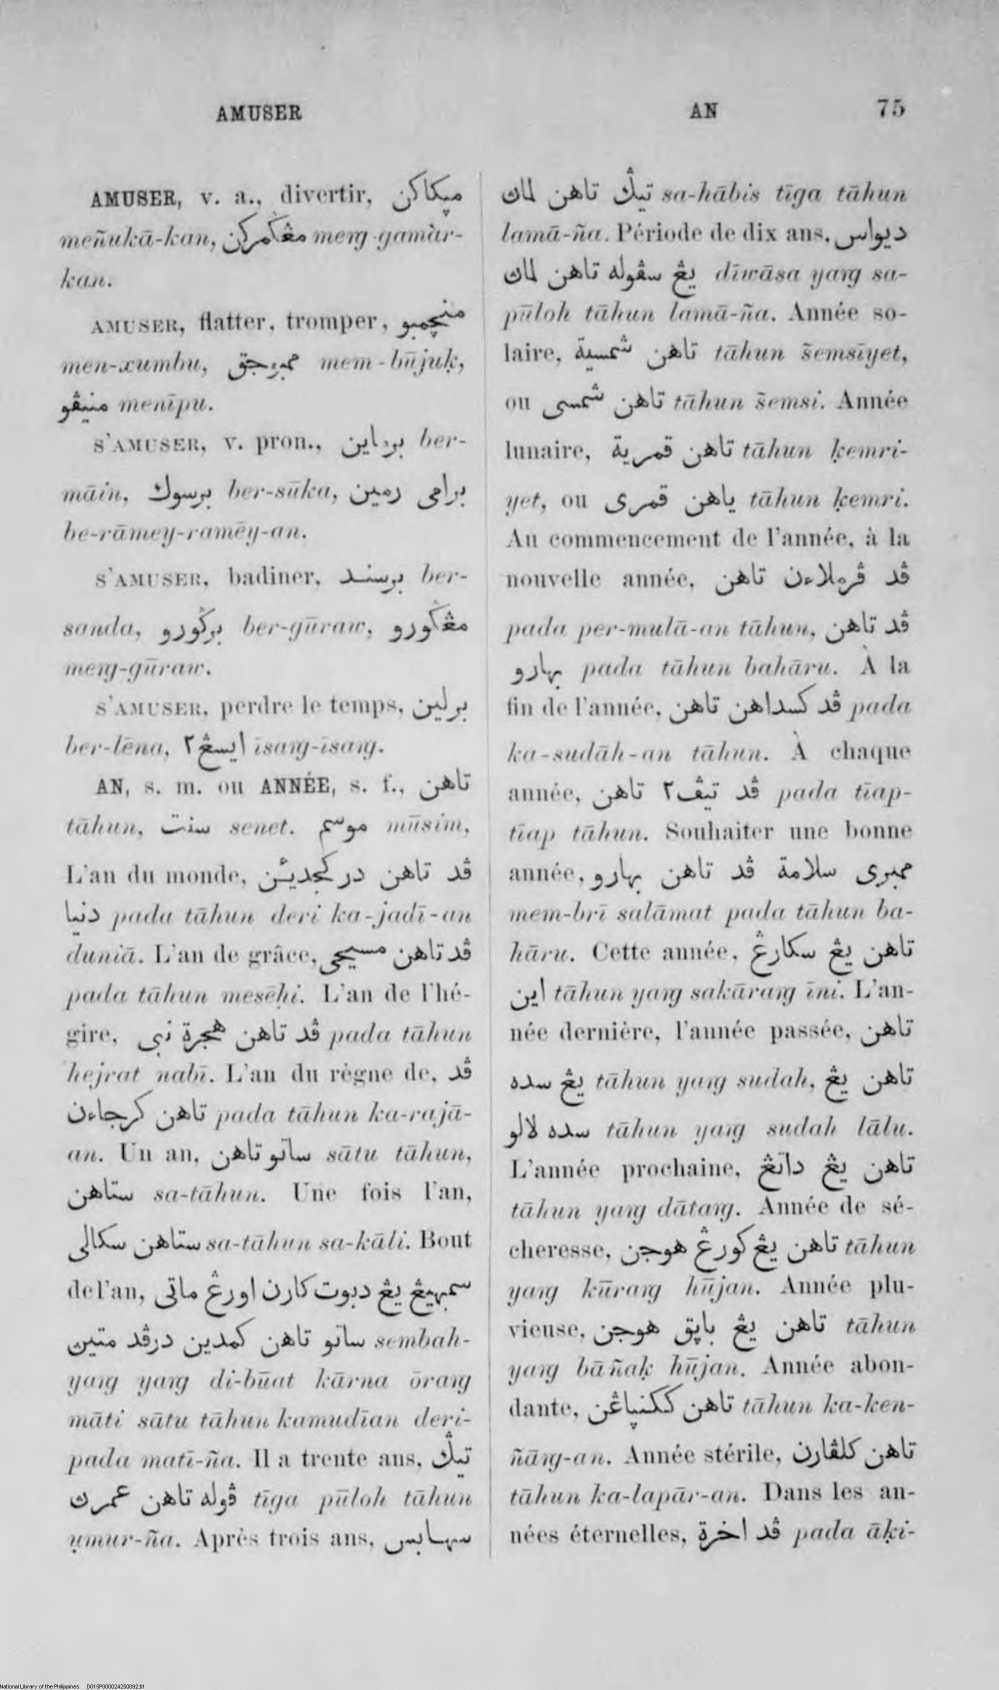 AMUSER
AN 75
AMUSER, v. a., divertir, ميكاكن
meñukā-kan, مڠݢمركن meŋg-gamār-
kan.
AMUSER, flatter, tromper, منچمبو
men-xumbu, ممبوجق mem-būjuḳ,
منيڤو menīpu.
S'AMUSER, v. pron., برماين ber-
māin, برسوك ber-sūka, برامى رمين
be-rāmey-ramēy-an.
S'AMUSER, badiner, برسند ber-
sanda, برݢورو ber-gūraw, مڠݢورو
meŋg-gūraw.
S'AMUSER, perdre le temps, برلين
ber-lēna, ايسڠ٢ īsaŋg-īsaŋg.
AN, s. m. ou ANNÉE, s. f., تاهن
tāhun, سنت senet. موسم mūsim,
L'an du monde, ڤد تاهن در كجديئن
دنيا pada tāhun deri ka-jadī-an
duniā. L'an de grâce, ڤد تاهن مسيحى
pada tāhun mesēḥi. L'an de l'hé-
gire, ڤد تاهن هجرة نبى pada tāhun
hejrat nabī. L'an du règne de, ڤد
تاهن كرجاءن pada tāhun ka-rajā-
an. Un an, ساتو تاهن sātu tāhun,
ستاهن sa-tāhun. Une fois l'an,
ستاهن سكالى sa-tāhun sa-kāli. Bout
de l'an, سمبهيڠ يڠ دبوت كارن اورڠ ماتى
ساتو تاهن كمدين درڤد متين sembah-
yaŋg yaŋg di-būat kārna ōraŋg
māti sātu tāhun kamudīan deri-
pada matī-ña. Il a trente ans, تيݢ
ڤوله تاهن عمرڽ tīga pūloh tāhun
ụmur-ña. Après trois ans, سهابس
تيݢ تاهن لماڽ sa-hābis tīga tāhun
lamā-ña. Période de dix ans, ديواس
يڠ سڤوله تاهن لماڽ dīwāsa yaŋg sa-
pūloh tāhun lamā-ña. Année so-
laire, تاهن شمسية tāhun šemsīyet,
ou تاهن شمسى tāhun šemsi. Année
lunaire, تاهن قمرية tāhun ḳemri-
yet, ou ياهن قمرى tāhun ḳemri.
Au commencement de l'année, à la
nouvelle année, ڤد ڤرملاءن تاهن
pada per-mulā-an tāhun, ڤد تاهن
بهارو pada tāhun bahāru. À la
fin de l'année, ڤد كسداهن تاهن pada
ka-sudāh-an tāhun. À chaque
année, ڤد تيڤ٢ تاهن pada tīap-
tīap tāhun. Souhaiter une bonne
année, ممبرى سلامة ڤد تاهن بهارو
mem-brī salāmat pada tāhun ba-
hāru. Cette année, تاهن يڠ سكارڠ
اين tāhun yaŋg sakāraŋg īni. L'an-
née dernière, l'année passée, تاهن
يڠ سده tāhun yaŋg sudah, تاهن يڠ
سده لالو tāhun yaŋg sudah lālu.
L'année prochaine, تاهن يڠ داتڠ
tāhun yaŋg dātaŋg. Année de sé-
cheresse, تاهن يڠ كورڠ هوجن tāhun
yaŋg kūraŋg hūjan. Année plu-
vieuse, تاهن يڠ باڽق هوجن tāhun
yaŋg bāñaḳ hūjan. Année abon-
dante, تاهن ككنڽاڠن tāhun ka-ken-
ñāŋg-an. Année stérile, تاهن كلڤارن
tāhun ka-lapār-an. Dans les an-
nées éternelles, ڤد اخرة pada āḳi-
National Library of the Philippines